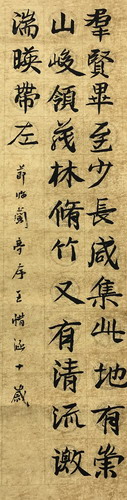 羣賢畢至少長咸集此地有崇
山峻領茂林脩竹又有清流激
湍暎帶左
節臨蘭亭序王惜涵十歲